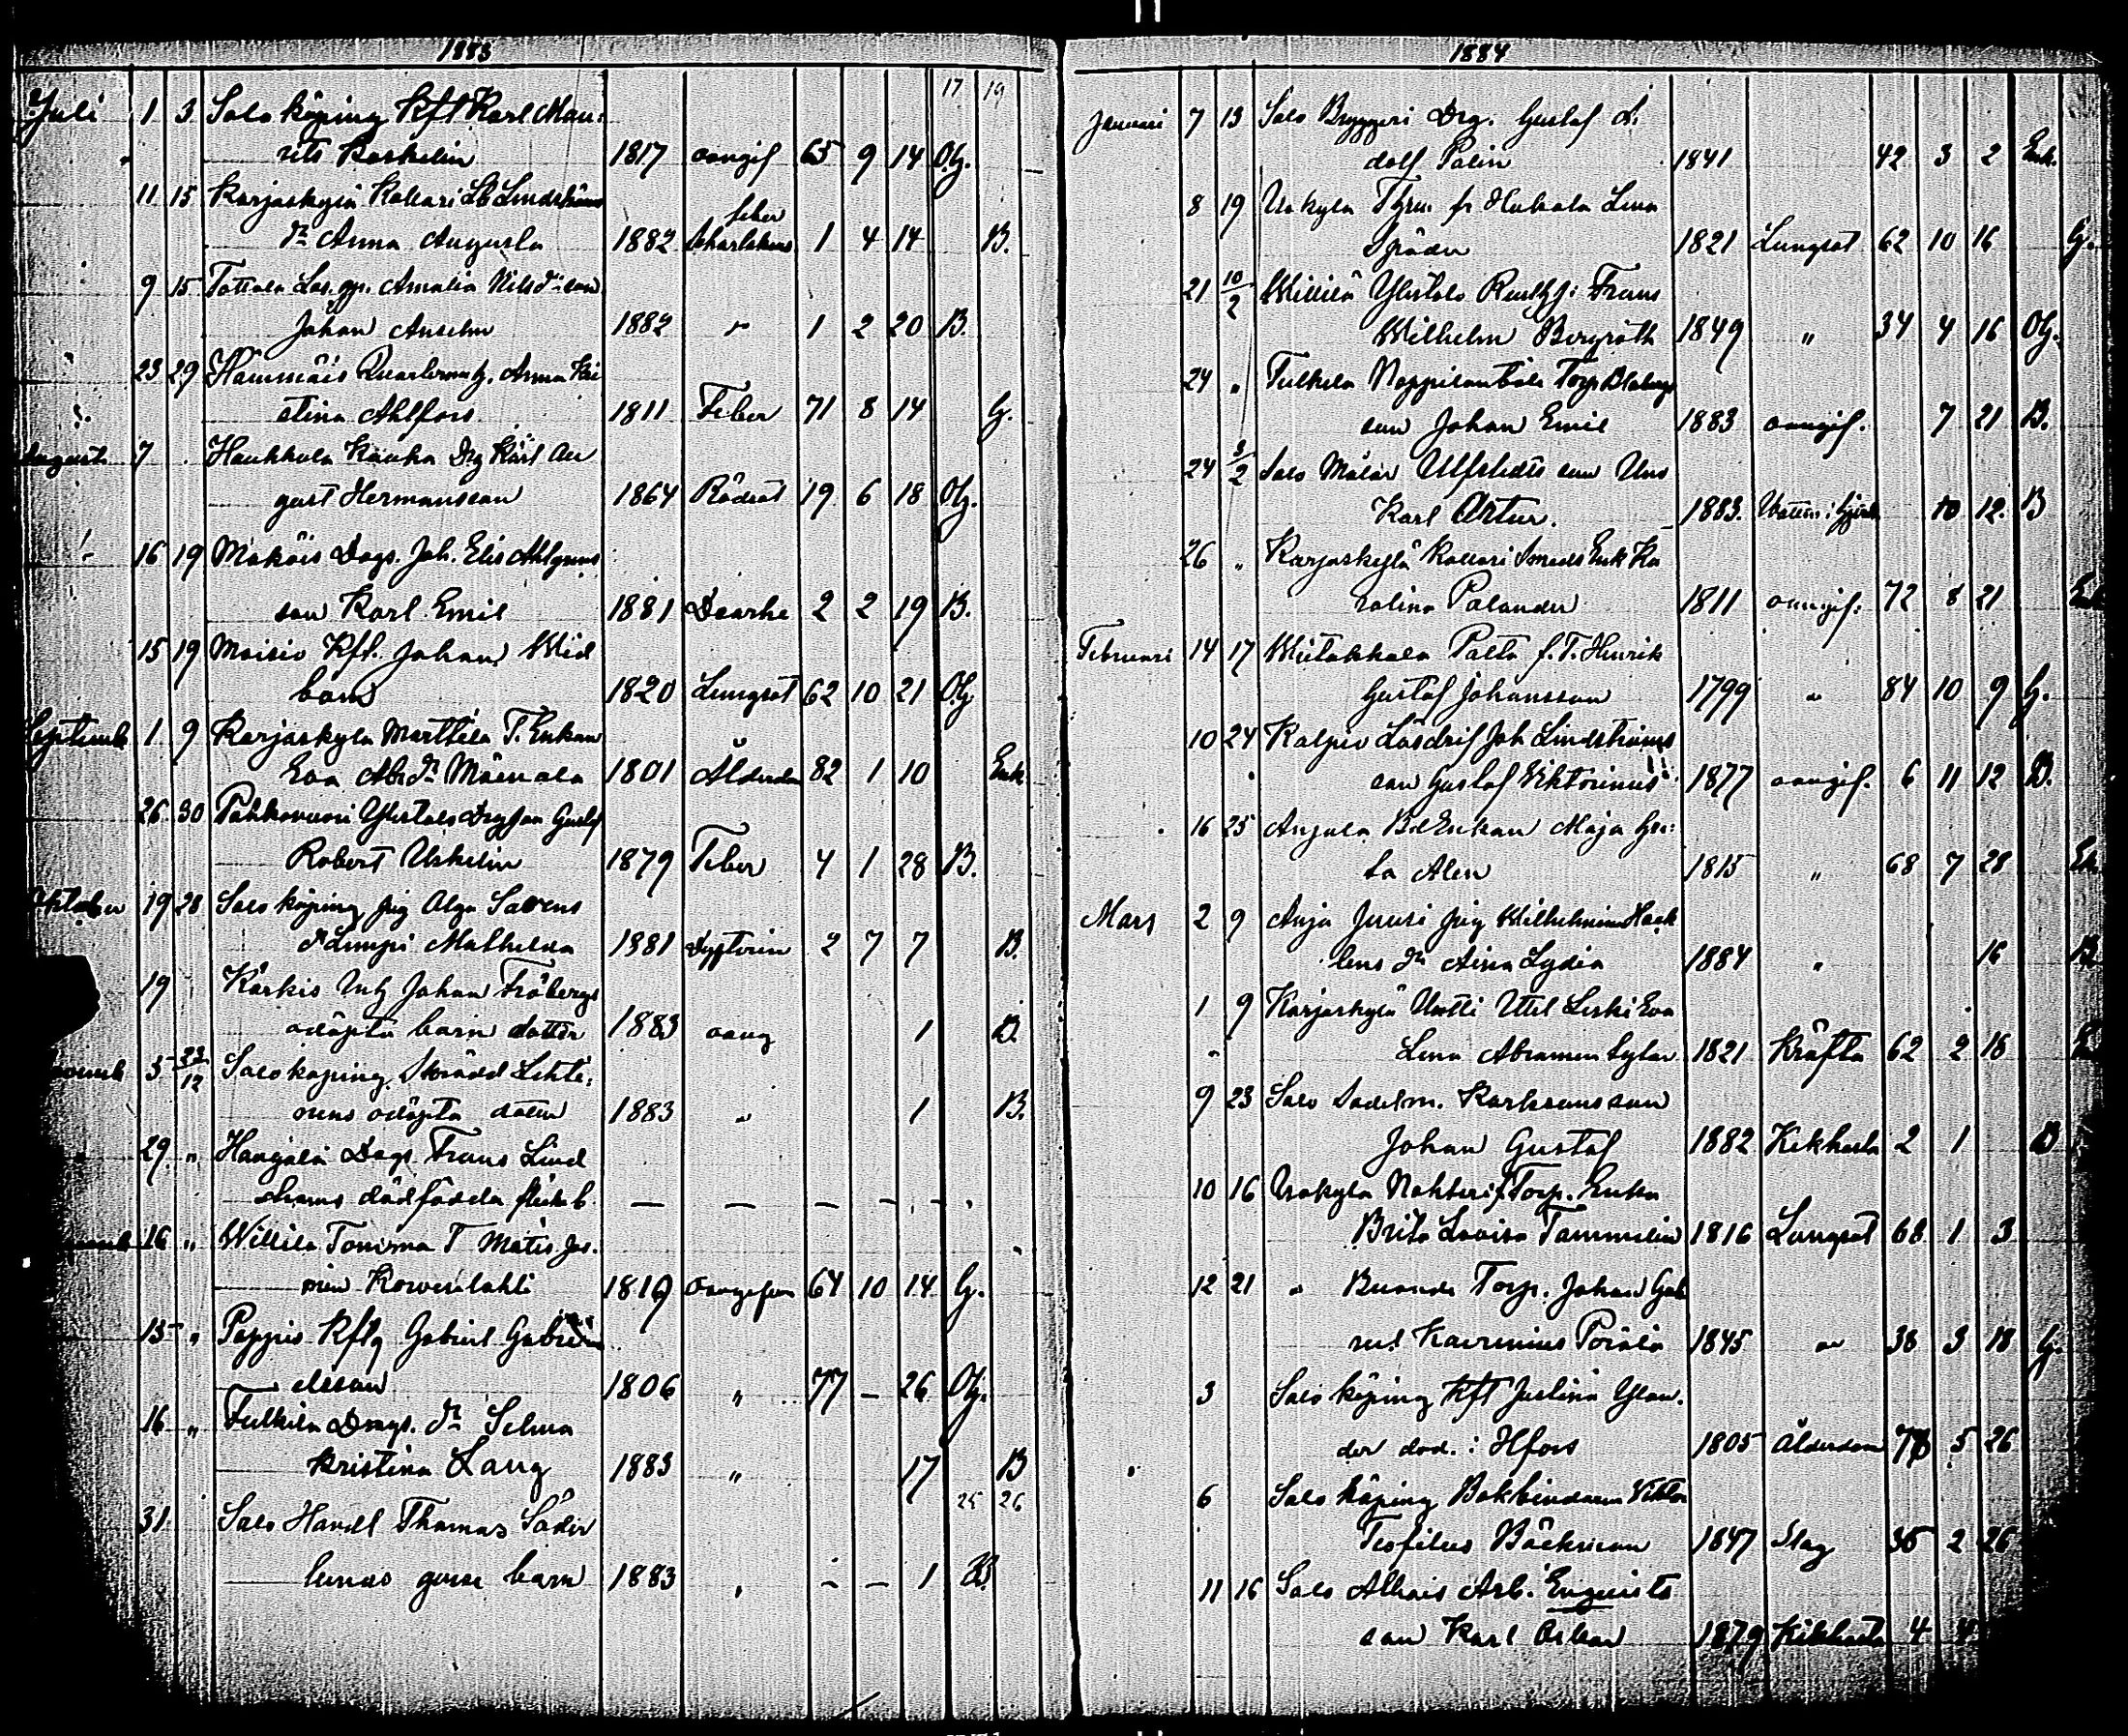 1883
17 19
Juli 1 3 Salo köping Kft Karl Mau:
rits Baskelin 1817 oangif 65 9 14 Og.
11 15 Karjaskylä Kollari Lb Lindströms
feber
dr Anna Augusta 1882 Scharlakans 1 4 14 B.
9 15 Tottola Los. gp. Amalia Nilsdr son
Johan Anselm 1882 " 1 2 20 B.
23 29 Hämmäis Anna Kri
stina Ahlfors 1811 Feber 71 8 14 G.
August 7 Haukkala Kauka Drg Karl Au
gust Hermansson 1864 Rödsot 19 6 18 Og.
16 19 Makois Dags. Joh. Elis Ahlgrens
son Karl Emil 1881 Diarhe 2 2 19 B.
15 19 Moisio Kft. Johan Wid
bom 1820 Lungsot 62 10 21 Og
Septemb 1 9 Karjaskyla Marttila T. Enkan
Eva Abr.dr Mäenala 1801 Ålderdom 82 1 10 Enk.
26 30 Pahkavuori Ylistalo Drg son Gustf
Robert Uskelin 1879 Feber 4 1 28 B.
Oktober 19 28 Salo köping pig Alga Savens
dr Lempi Mathilda 1881 Dyfterin 2 7 7 B.
19 Kärkis Inh Johan Fröbergs
odöpta barn dotter 1883 oang 1 B.
5 23/12 Salo köping Skrädd Lehti:
nens odöpta dotter 1883 " 1 B.
29 " Hangala Dags Frans Lind
ströms dödfödda flickb. — — — — —
16 " Willila Tomma T Mats Jos.
min Korvenlahti 1819 oangifven 64 10 14 G.
15 " Pappis Kftg Gabriel Gabri
elsson 1806 " 77 — 26 Og.
16 " Fulkila Drags. dr Selma
Kristina Lang 1883 " 17 B
25 26
31 Salo Handl Thomas Söder
lunds gosse barn 1883 " — — 1 B.
1884
Januari 7 13 Salo Bryggeri Drg. Gustaf A:
dolf Palin 1841 42 3 2 Enk.
8 19 Uskyla Lena
Sjödu 1821 Lungsot 62 10 16 G.
21 10/2 Willilä Ylistalo Frans
Wilhelm Bergroth 1849 " 34 4 16 Og.
24 " Fulkila Noppilanbale Torp
son Johan Emil 1883 oangif. 7 21 B.
24 3/2 Salo Målar Ulfstedts son Uno
Karl Artur. 1883. 10 12. B
26 " Karjaskylä Kollari Smeds Enk Ka
rolina Palander 1811 oangif: 72 8 21
Februari 14 17 Wiitakkala Palta f.T. Henrik
Gustaf Johansson 1799 " 84 10 9 G.
10 24 Kalpio Lösdrif Joh Lindströms
son Gustaf Viktorinus 1877 oangif. 6 11 12 B.
16 25 Anjala Enkan Maja Gre:
ta Alen 1815 " 68 7 28
Mars 2 9 Anja Juusi pig Wilhelmina Hack
lins dr Aina Lydia 1884 " 16
1 9 Karjaskylä Eva
Lena Abramin 1821 Kräfta 62 2 18
9 23 Salo Sadelm. Karlssons son
Johan Gustaf 1882 Kikhosta 2 1 B
10 16 Uskyla Nohteri f Torp. Enka
Brita Lovisa Tammelin 1816 Lungsot 68 1 3
12 21 " Torp. Johan Gab
riel 1845 " 38 3 18 G.
3 Salo köping Kft Justina Ylan:
der död. i Hfors 1805 Ålderdom 5 26
6 Salo köping Bokbindaren Viktor
Teofilus Bäckman 1847 Slag 36 2 26
11 16 Salo Alhais Arb. Enquists
son Karl Oskar 1879 Kikhosta 4 4